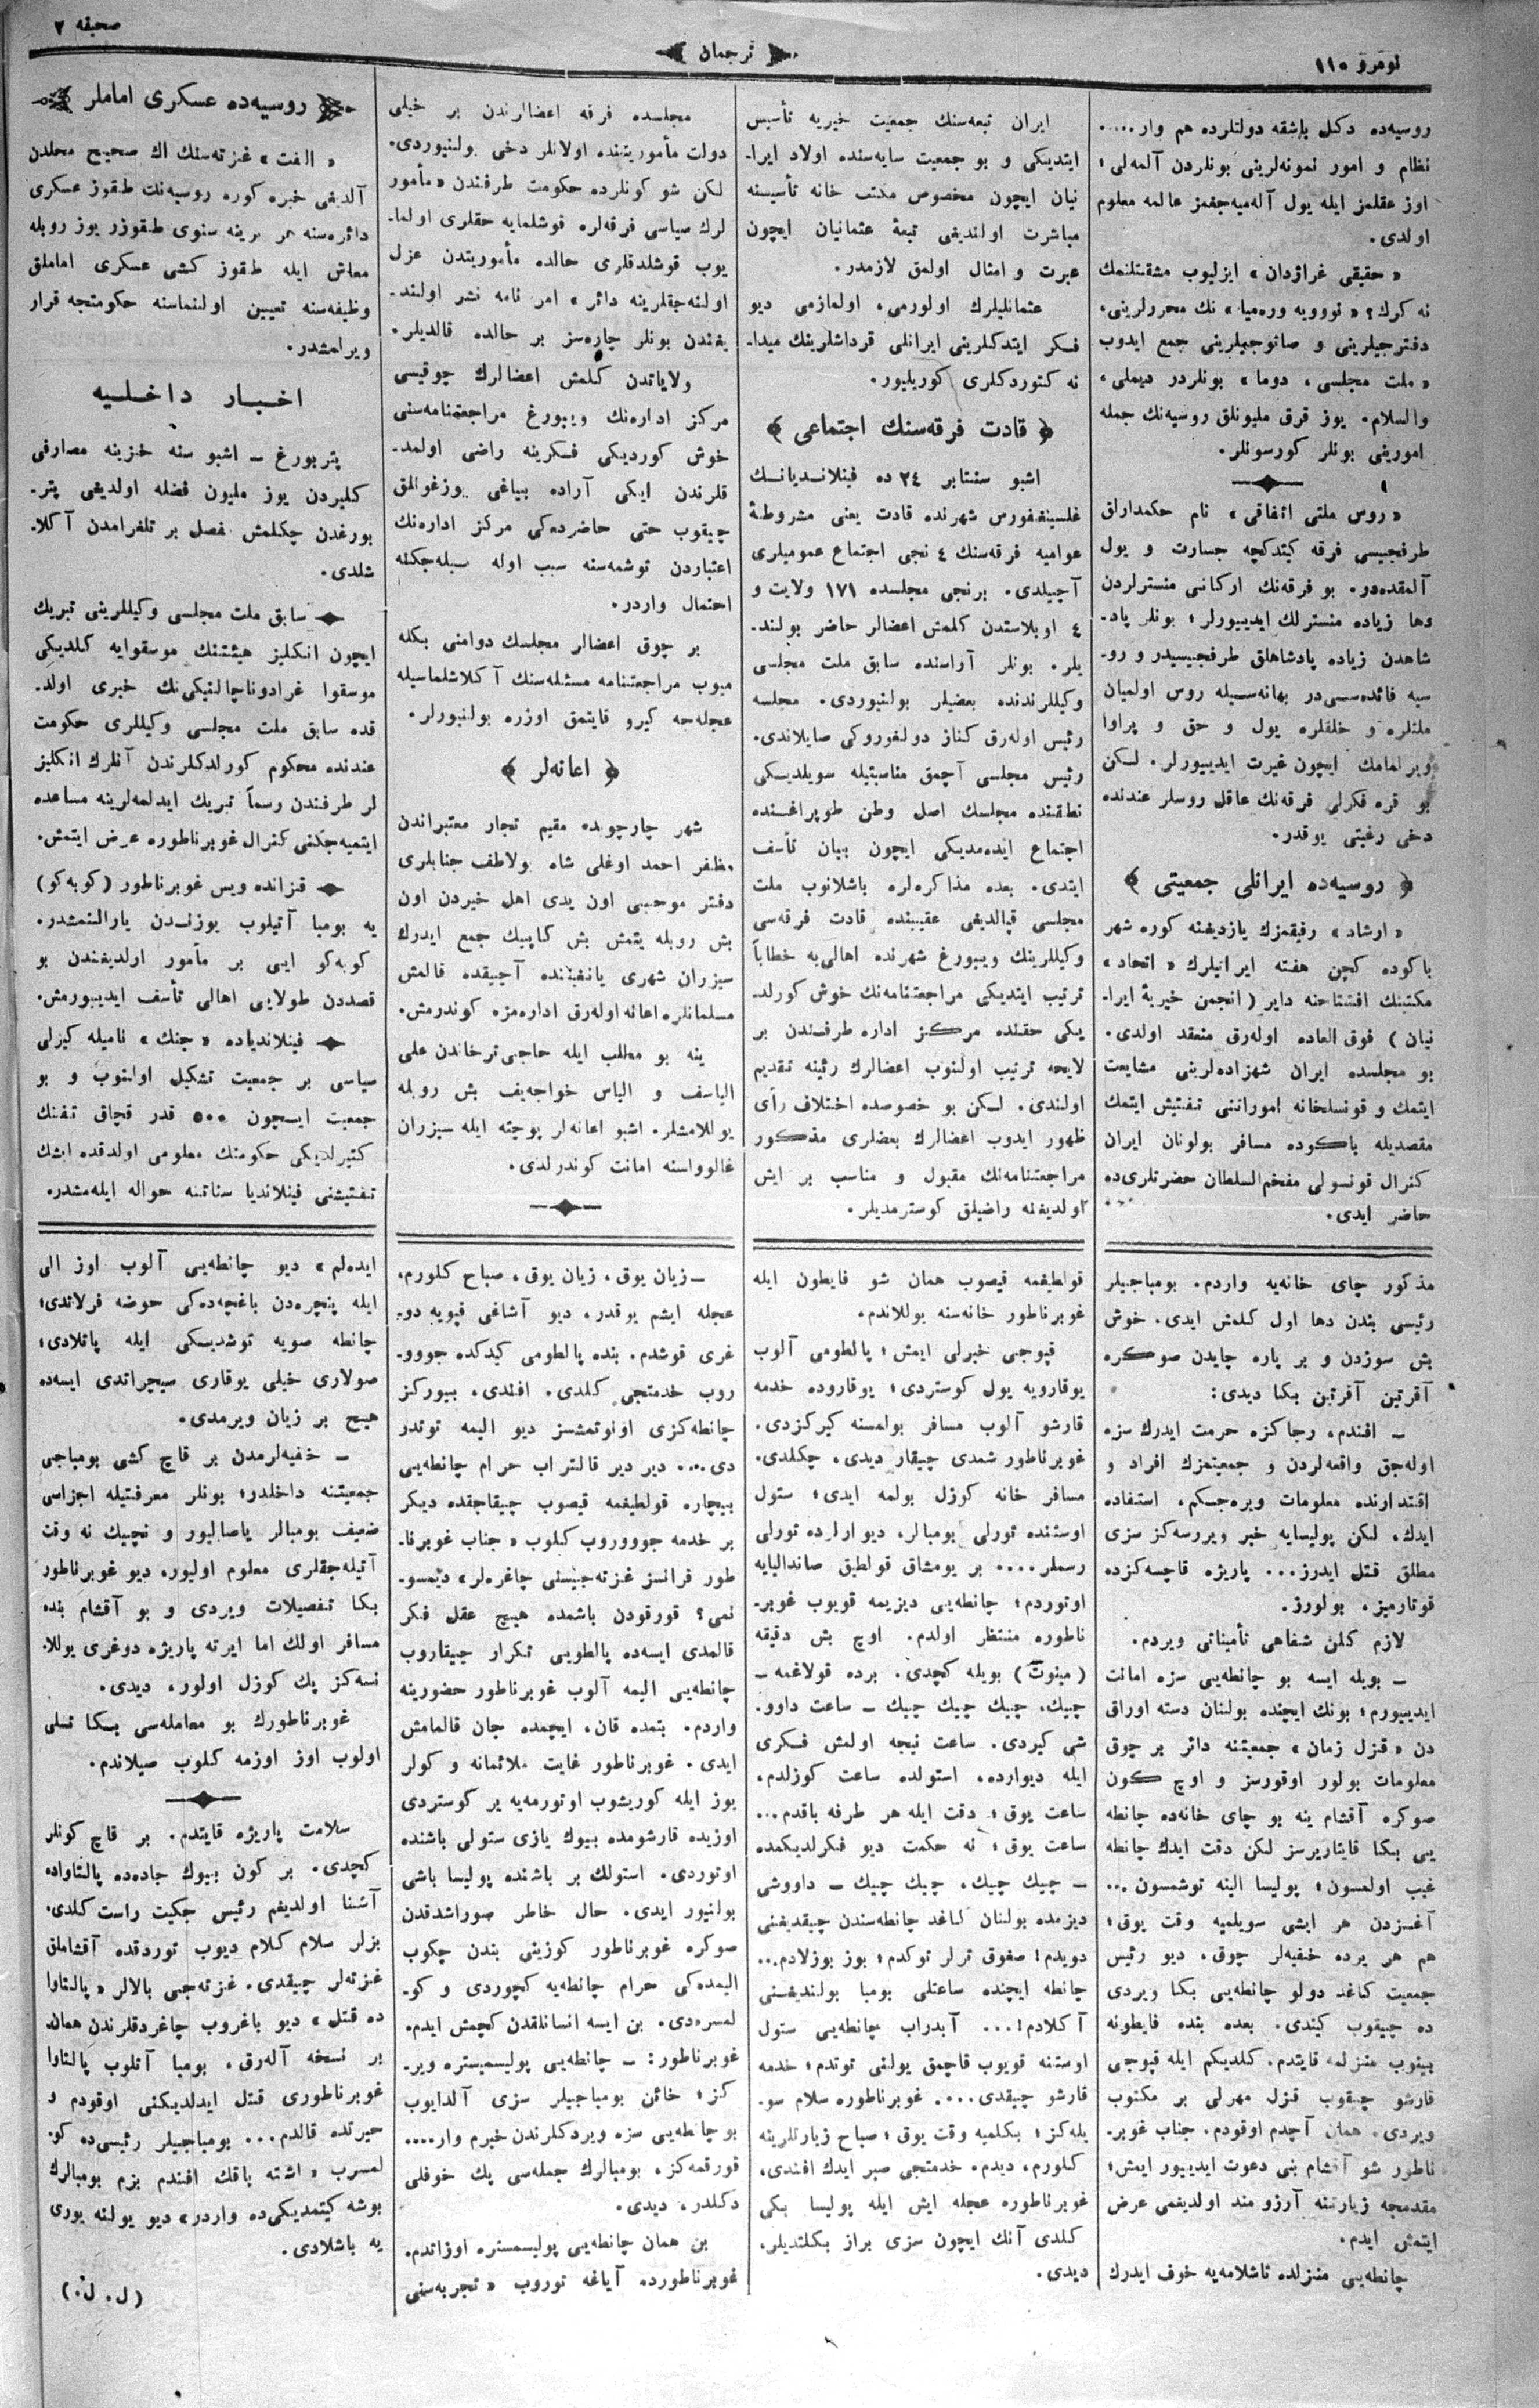 نومرو ١١٠
ترجمان
صحيفه ٢
روسيه‌ده دكل باشقه دولتلرده هم وار.....
نظام و امور نمونه‌لرينى بونلردن آلمه‌لى؛
اوز عقلمز ايله يول آله‌ميه‌جغمز عالمه معلوم
اولدى.
«حقيقى غراژدان» ايزليوب مشقتلنمك
نه كرك؟ «نوويه وره‌ميا» نك محررلرينى،
دفترجيلرينى و صاتوجيلرينى جمع ايدوب
«ملت مجلسى، دوما» بونلردر ديملى،
والسلام. يوز قرق مليونلق روسيه‌نك جمله
امورينى بونلر كورسونلر.
«روس ملتى اتفاقى» نام حكمدارلق
طرفجيسى فرقه كيتدكچه جسارت و يول
آلمقده‌در. بو فرقه‌نك اركانى منسترلردن
دها زياده منسترلك ايدييورلر؛ بونلر پاد-
شاهدن زياده پادشاهلق طرفجيسيدر و رو-
سيه فائده‌سى‌در بهانه‌سيله روس اولميان
ملتلره و خلقلره يول و حق و پراوا
ويرلمامك ايچون غيرت ايدييورلر. لكن
بو قره فكرلى فرقه‌نك عاقل روسلر عندنده
دخى رغبتى يوقدر.
﴿ روسيه‌ده ايرانلى جمعيتى ﴾
«ارشاد» رفيقمزك يازديغنه كوره شهر
باكوده كچن هفته ايرانيلرك «اتحاد»
مكتبنك افتتاحنه داير (انجمن خيريهٔ ايرا-
نيان) فوق العاده اوله‌رق منعقد اولدى.
بو مجلسده ايران شهزاده‌لرينى مشايعت
ايتمك و قونسلخانه اموراتنى تفتيش ايتمك
مقصديله باكوده مسافر بولونان ايران
كنرال قونسولى مفخم‌السلطان حضرتلرى‌ده
حاضر ايدى.
ايران تبعه‌سنك جمعيت خيريه تأسيس
ايتديكى و بو جمعيت سايه‌سنده اولاد ايرا-
نيان ايچون مخصوص مكتب خانه تأسيسنه
مباشرت اولنديغى تبعهٔ عثمانيان ايچون
عبرت و امثال اولمق لازمدر.
عثمانليلرك اولورمى، اولمازمى ديو
فكر ايتدكلرينى ايرانلى قرداشلرينك ميدا-
نه كتوردكلرى كوريليور.
﴿ قادت فرقه‌سنك اجتماعى ﴾
اشبو سنتابر ٢٤ ده فينلانديانك
غلسينغفورس شهرنده قادت يعنى مشروطهٔ
عواميه فرقه‌سنك ٤ نجى اجتماع عموميلرى
آچيلدى. برنجى مجلسده ١٧١ ولايت و
٤ اوبلاستدن كلمش اعضالر حاضر بولند-
يلر. بونلر آراسنده سابق ملت مجلسى
وكيللرندنده بعضيلر بولنيوردى. مجلسه
رئيس اوله‌رق كناز دولغوروكى صايلاندى.
رئيس مجلسى آچمق مناسبتيله سويلديكى
نطقنده مجلسك اصل وطن طوپراغنده
اجتماع ايده‌مديكى ايچون بيان تأسف
ايتدى. بعده مذاكره‌لره باشلانوب ملت
مجلسى قپالديغى عقيبنده قادت فرقه‌سى
وكيللرينك ويبورغ شهرنده اهالى‌يه خطاباً
ترتيب ايتديكى مراجعتنامه‌نك خوش كورلد-
يكى حقنده مركز اداره طرفندن بر
لايحه ترتيب اولنوب اعضالرك رئينه تقديم
اولندى. لكن بو خصوصده اختلاف رأى
ظهور ايدوب اعضالرك بعضلرى مذكور
مراجعتنامه‌نك مقبول و مناسب بر ايش
اولديغنه راضيلق كوسترمديلر.
مجلسده فرقه اعضالرندن بر خيلى
دولت مأموريتنده اولانلر دخى بولنيوردى.
لكن شو كونلرده حكومت طرفندن «مأمور
لرك سياسى فرقه‌لره قوشلمايه حقلرى اولما-
يوب قوشلدقلرى حالده مأموريتدن عزل
اولنه‌جقلرينه دائر» امر نامه نشر اولند-
يغندن بونلر چاره‌سز بر حالده قالديلر.
ولاياتدن كلمش اعضالرك چوقيسى
مركز اداره‌نك ويبورغ مراجعتنامه‌سنى
خوش كورديكى فكرينه راضى اولمد-
قلرندن ايكى آراده بياغى بوزغونلق
چيقوب حتى حاضرده‌كى مركز اداره‌نك
اعتباردن توشمه‌سنه سبب اوله بيله‌جكنه
احتمال واردر.
بر چوق اعضالر مجلسك دوامنى بكله
ميوب مراجعتنامه مسئله‌سنك آكلاشلماسيله
عجله‌جه كيرو قايتمق اوزره بولنيورلر.
﴿ اعانه‌لر ﴾
شهر چارچويده مقيم تجار معتبراندن
مظفر احمد اوغلى شاه بولاطف جنابلرى
دفتر موجبى اون يدى اهل خيردن اون
بش روبله يتمش بش كاپيك جمع ايدرك
سيزران شهرى يانغيننده آچيقده قالمش
مسلمانلره اعانه اوله‌رق اداره‌مزه كوندرمش.
ينه بو مطلب ايله حاجى‌ترخاندن على
الياسف و الياس خواجه‌يف بش روبله
يوللامشلر. اشبو اعانه‌لر پوچته ايله سيزران
غالوواسنه امانت كوندرلدى.
روسيه‌ده عسكرى اماملر
«الفت» غزته‌سنك اك صحيح محلدن
آلديغى خبره كوره روسيه‌نك طقوز عسكرى
دائره‌سنه هر برينه سنوى طقوزر يوز روبله
معاش ايله طقوز كشى عسكرى اماملق
وظيفه‌سنه تعيين اولنماسنه حكومتجه قرار
ويرلمشدر.
اخبار داخليه
پتربورغ — اشبو سنه خزينه مصارفى
كليردن يوز مليون فضله اولديغى پتر-
بورغدن چكلمش مفصل بر تلغرامدن آكلا-
شلدى.
سابق ملت مجلسى وكيللرينى تبريك
ايچون انكليز هيئتنك موسقوايه كلديكى
موسقوا غرادوناچالنيكى‌نك خبرى اولد-
قده سابق ملت مجلسى وكيللرى حكومت
عندنده محكوم كورلدكلرندن آنلرك انكليز
لر طرفندن رسماً تبريك ايدلمه‌لرينه مساعده
ايتميه‌جكنى كنرال غوبرناطوره عرض ايتمش.
قزانده ويس غوبرناطور (كوبه‌كو)
يه بومبا آتيلوب يوزندن يارالنمشدر.
كوبه‌كو ايى بر مأمور اولديغندن بو
قصددن طولايى اهالى تأسف ايدييورمش.
فينلانديا‌ده «جنك» ناميله كيزلى
سياسى بر جمعيت تشكيل اولنوب و بو
جمعيت ايچون ٥٠٠ قدر قچاق تفنك
كتيرلديكى حكومتك معلومى اولدقده ايشك
تفتيشنى فينلانديا سناتنه حواله ايله‌مشدر.
مذكور چاى خانه‌يه واردم. بومباجيلر
رئيسى بندن دها اول كلمش ايدى. خوش
بش سوزدن و بر پاره چايدن صوكره
آقرتين آقرتين بكا ديدى:
— افندم، رجاكزه حرمت ايدرك سزه
اوله‌جق واقعه‌لردن و جمعيتمزك افراد و
اقتدارنده معلومات ويره‌جكم، استفاده
ايدك، لكن پوليسايه خبر ويررسه‌كز سزى
مطلق قتل ايدرز... پاريژه قاچسه‌كزده
قوتارميز، بولورز.
لازم كلن شفاهى تأميناتى ويردم.
— بويله ايسه بو چانطه‌يى سزه امانت
ايدييورم؛ بونك ايچنده بولنان دسته اوراق
دن «قزل زمان» جمعيتنه دائر بر چوق
معلومات بولور اوقورسز و اوچ كون
صوكره آقشام ينه بو چاى خانه‌ده چانطه
يى بكا قايتاريرسز لكن دقت ايدك چانطه
غيب اولمسون؛ پوليسا الينه توشمسون...
آغزدن هر ايشى سويلميه وقت يوق؛
هم هر يرده خفيه‌لر چوق، ديو رئيس
جمعيت كاغد دولو چانطه‌يى بكا ويردى
ده چيقوب كيتدى. بعده بنده فايطونه
بينوب منزلمه قايتدم. كلديكم ايله قپوجى
قارشو چيقوب قزل مهرلى بر مكتوب
ويردى. همان آچدم اوقودم. جناب غوبر-
ناطور شو آقشام بنى دعوت ايدييور ايمش؛
مقدمجه زيارتنه آرزو مند اولديغمى عرض
ايتمش ايدم.
چانطه‌يى منزلده تاشلامه‌يه خوف ايدرك
قولطيغمه قيصوب همان شو فايطون ايله
غوبرناطور خانه‌سنه يوللاندم.
قپوجى خبرلى ايمش؛ پالطومى آلوب
يوقارويه يول كوستردى؛ يوقاروده خدمه
قارشو آلوب مسافر بولمسنه كيركزدى.
غوبرناطور شمدى چيقار ديدى، چكلدى.
مسافر خانه كوزل بولمه ايدى؛ ستول
اوستنده تورلى بومبالر، ديوارلرده تورلى
رسملر.... بر يومشاق قولطق صانداليايه
اوتوردم؛ چانطه‌يى ديزيمه قويوب غوبر-
ناطوره منتظر اولدم. اوچ بش دقيقه
(مينوت) بويله كچدى. برده قولاغمه —
چيك، چيك چيك چيك — ساعت داوو-
شى كيردى. ساعت نيجه اولمش فكرى
ايله ديوارده، استولده ساعت كوزلدم،
ساعت يوق؛ دقت ايله هر طرفه باقدم...
ساعت يوق؛ نه حكمت ديو فكرلديكمده
— چيك چيك، چيك چيك — داووشى
ديزمده بولنان كاغد چانطه‌سندن چيقديغنى
دويدم! صغوق ترلر توكدم؛ بوز بوزلادم...
چانطه ايچنده ساعتلى بومبا بولنديغنى
آكلادم!... آبدراب چانطه‌يى ستول
اوستنه قويوب قاچمق يولنى توتدم؛ خدمه
قارشو چيقدى.... غوبرناطوره سلام سو-
يله‌كز؛ بكلميه وقت يوق؛ صباح زيارتلرينه
كلورم، ديدم. خدمتجى صبر ايدك افندى،
غوبرناطوره عجله ايش ايله پوليسا بكى
كلدى آنك ايچون سزى براز بكلتديلر،
ديدى.
— زيان يوق، زيان يوق، صباح كلورم،
عجله ايشم يوقدر، ديو آشاغى قپويه دو-
غرى قوشدم. بنده پالطومى كيدكده جووو-
روب خدمتجى كلدى. افندى، بيوركز
چانطه‌كزى اونوتمشسز ديو اليمه توتدر
دى.... دير دير قالتراب حرام چانطه‌يى
بيچاره قولطيغمه قيصوب چيقاجقده ديكر
بر خدمه جوووروب كلوب «جناب غوبرنا-
طور فرانسز غزته‌جيسنى چاغره‌لر» ديمسو-
نمى؟ قورقودن باشمده هيچ عقل فكر
قالمدى ايسه‌ده پالطويى تكرار چيقاروب
چانطه‌يى اليمه آلوب غوبرناطور حضورينه
واردم. بتمده قان، ايچمده جان قالمامش
ايدى. غوبرناطور غايت ملائمانه و كولر
يوز ايله كوريشوب اوتورمه‌يه ير كوستردى
اوزيده قارشومده بيوك يازى ستولى باشنده
اوتوردى. استولك بر باشنده پوليسا باشى
بولنيور ايدى. حال خاطر صوراشدقدن
صوكره غوبرناطور كوزينى بندن چكوب
اليمده‌كى حرام چانطه‌يه كچوردى و كو-
لمسره‌دى. بن ايسه انسانلقدن كچمش ايدم.
غوبرناطور: — چانطه‌يى پوليسميستره وير-
كز؛ خائن بومباجيلر سزى آلدايوب
بو چانطه‌يى سزه ويردكلرندن خبرم وار....
قورقمه‌كز، بومبالرك جمله‌سى پك خوفلى
دكلدر، ديدى.
بن همان چانطه‌يى پوليسمستره اوزاتدم.
غوبرناطورده آياغه توروب «تجربه‌سنى
ايده‌لم» ديو چانطه‌يى آلوب اوز الى
ايله پنچره‌دن باغچه‌ده‌كى حوضه فرلاتدى؛
چانطه صويه توشديكى ايله پاتلادى؛
صولارى خيلى يوقارى سيچراتدى ايسه‌ده
هيچ بر زيان ويرمدى.
— خفيه‌لرمدن بر قاچ كشى بومباجى
جمعيتنه داخلدر؛ بونلر معرفتيله اجزاسى
ضعيف بومبالر ياصاليور و نچيك نه وقت
آتيله‌جقلرى معلوم اوليور، ديو غوبرناطور
بكا تفصيلات ويردى و بو آقشام بنده
مسافر اولك اما ايرته پاريژه دوغرى يوللا-
نسه‌كز پك كوزل اولور، ديدى.
غوبرناطورك بو معامله‌سى بكا تسلى
اولوب اوز اوزمه كلوب صيلاندم.
سلامت پاريژه قايتدم. بر قاچ كونلر
كچدى. بر كون بيوك جاده‌ده پالتاواده
آشنا اولديغم رئيس جكيت راست كلدى.
بزلر سلام كلام ديوب توردقده آقشاملق
غزته‌لر چيقدى. غزته‌جى بالالر «پالتاوا
ده قتل» ديو باغروب چاغردقلرندن همان
بر نسخه آله‌رق، بومبا آتلوب پالتاوا
غوبرناطورى قتل ايدلديكنى اوقودم و
حيرتده قالدم... بومباجيلر رئيسى‌ده كو-
لمسرب «اشته باقك افندم بزم بومبالرك
بوشه كيتمديكى‌ده واردر» ديو يولنه يورى
يه باشلادى.
(ل. ل.)